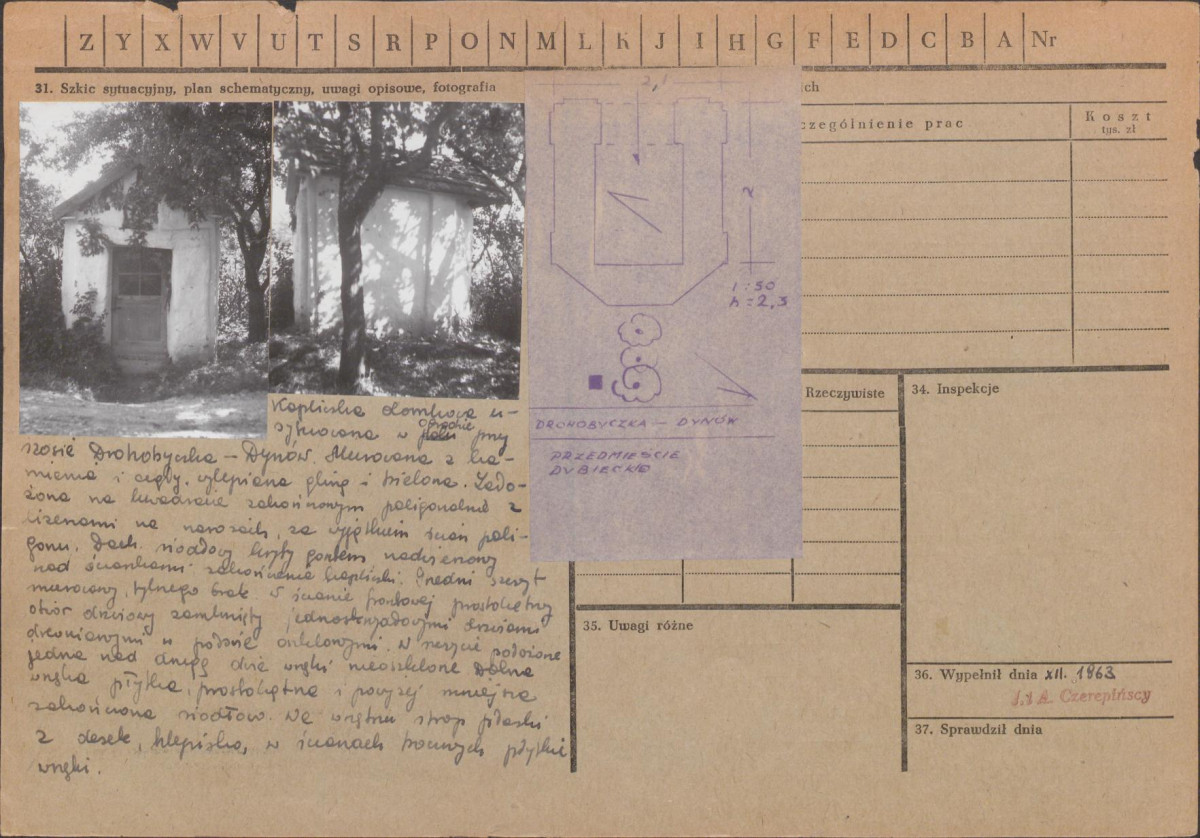 Z Y X W V U T S R P O N M L K J I H G F E D C B A Nr
31. Szkic sytuacyjny, plan schematyczny, uwagi opisowe, fotografia
ich
zególnienie prac
Koszt
tys. zł
2,1
2
1:50
h = 2,3
DROHOBYCZKA — DYNÓW
PRZEDMIEŚCIE
DUBIECKO
Kapliczka domkowa u-
sytuowana w ogrodzie przy
szosie Drohobyczka — Dynów. Murowana z ka-
mienia i cegły, wylepiana gliną i bielona. Zało-
żona na kwadracie zakończonym poligonalnie z
lizenami na narożach, za wyjątkiem ścian poli-
gonu. Dach siodłowy kryty gontem nadwieszony
nad ściankami zakończenia kapliczki. Przedni szczyt
murowany, tylnego brak. W ścianie frontowej prostokątny
otwór drzwiowy zamknięty jednoskrzydłowymi drzwiami
drewnianymi w połowie oszklonymi. W szczycie położone
jedna nad drugą dwie wnęki nieoszklone Dolna
wnęka płytka, prostokątna i powyżej mniejsza
zakończona siodłowo. We wnętrzu strop płaski
z desek, klepisko, w ścianach bocznych płytkie
wnęki.
Rzeczywiste
34. Inspekcje
35. Uwagi różne
36. Wypełnił dnia XII. 1963
J. i A. Czerepińscy
37. Sprawdził dnia